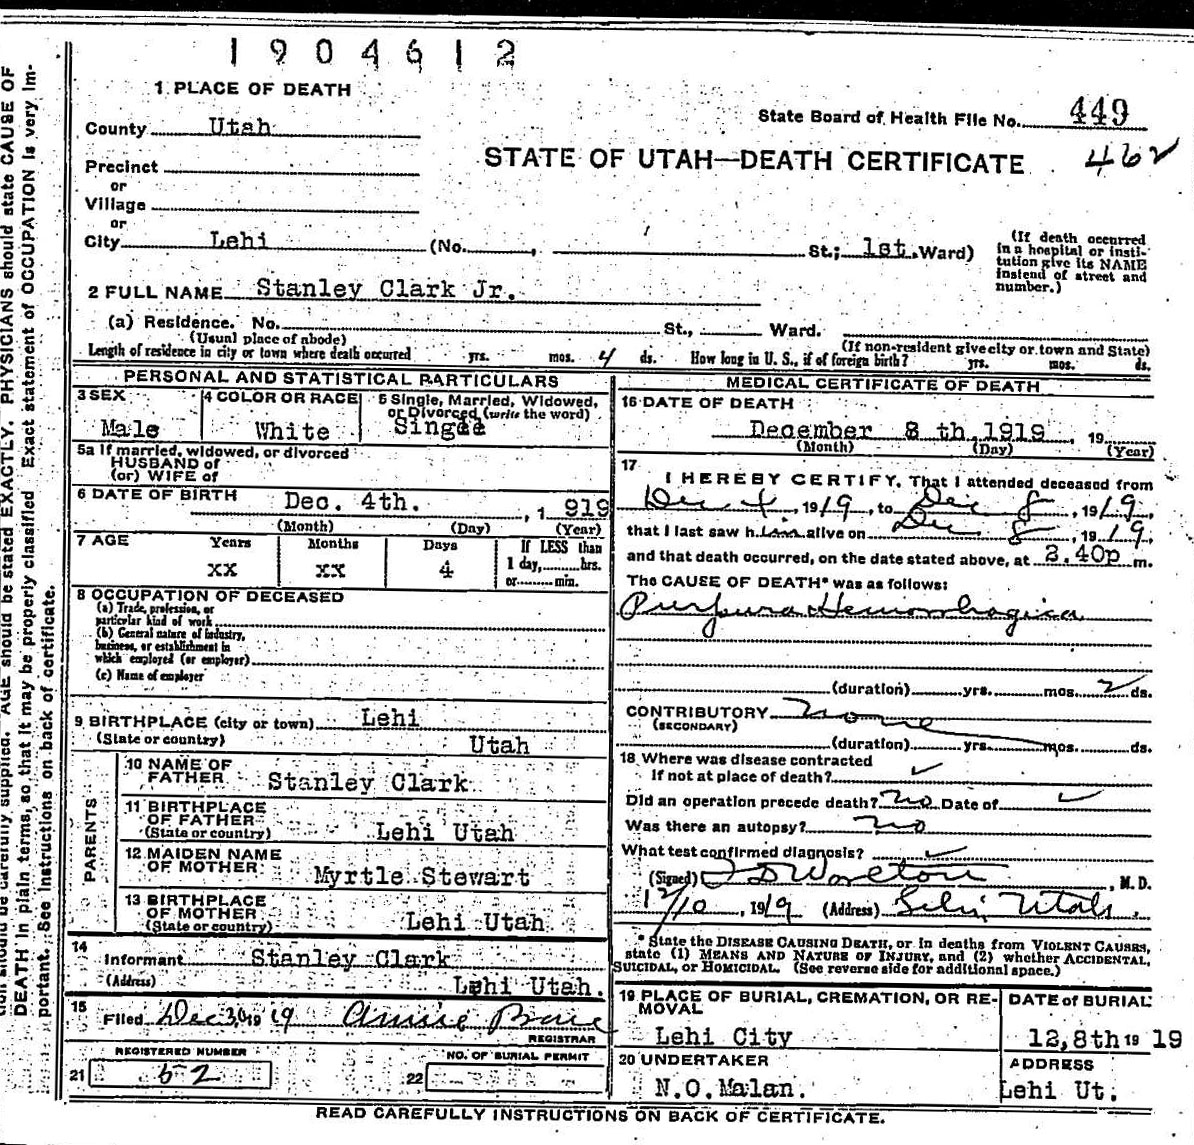 1904612
1 PLACE OF DEATH
County Utah
State Board of Health File No. 449
STATE OF UTAH—DEATH CERTIFICATE 462
Precinct
or
Village
or
City Lehi (No. , St.; 1st. Ward)
(If death occurred in a hospital or insti-
tution give its NAME
instead of street and
number.)
2 FULL NAME Stanley Clark Jr.
(a) Residence. No. St., Ward.
(Usual place of abode) (If non-resident give city or town and State)
Length of residence in city or town where death occurred yrs. mos. 4 ds. How long in U. S., if of foreign birth? yrs. mos. ds.
PERSONAL AND STATISTICAL PARTICULARS
3 SEX
Male
4 COLOR OR RACE
White
5 Single, Married, Widowed,
or Divorced (write the word)
5a If married, widowed, or divorced
HUSBAND of
(or) WIFE of
6 DATE OF BIRTH Dec. 4th. , 1 919
(Month) (Day) (Year)
7 AGE Years Months Days If LESS than
XX XX 4 1 day, hrs.
or min.
8 OCCUPATION OF DECEASED
(a) Trade, profession, or
particular kind of work
(b) General nature of industry,
business, or establishment in
which employed (or employer)
(c) Name of employer
9 BIRTHPLACE (city or town) Lehi
(State or country) Utah
PARENTS
10 NAME OF
FATHER Stanley Clark
11 BIRTHPLACE
OF FATHER
(State or country) Lehi Utah
12 MAIDEN NAME
OF MOTHER Myrtle Stewart
13 BIRTHPLACE
OF MOTHER
(State or country) Lehi Utah
14
Informant Stanley Clark
(Address) Lehi Utah.
15
Filed Dec 30 19 19 Annie
REGISTRAR
REGISTERED NUMBER
21 52
NO. OF BURIAL PERMIT
22
MEDICAL CERTIFICATE OF DEATH
16 DATE OF DEATH
December 8 th 1919 , 19
(Month) (Day) (Year)
17
I HEREBY CERTIFY, That I attended deceased from
Dec 4 , 1919, to Dec 8 , 1919,
that I last saw him alive on Dec 8 , 1919,
and that death occurred, on the date stated above, at 2.40p m.
The CAUSE OF DEATH* was as follows:
Purpura Hemorrhagica
(duration) yrs. mos. 2 ds.
CONTRIBUTORY None
(SECONDARY)
(duration) yrs. mos. ds.
18 Where was disease contracted
If not at place of death? ✓
Did an operation precede death? No Date of ✓
Was there an autopsy? No
What test confirmed diagnosis? ✓
(Signed) , M. D.
12/10 , 1919 (Address) Lehi, Utah.
* State the DISEASE CAUSING DEATH, or in deaths from VIOLENT CAUSES,
state (1) MEANS AND NATURE OF INJURY, and (2) whether ACCIDENTAL,
SUICIDAL, or HOMICIDAL. (See reverse side for additional space.)
19 PLACE OF BURIAL, CREMATION, OR RE-
MOVAL
Lehi City
DATE of BURIAL
12,8th 19 19
20 UNDERTAKER
N.O.Malan.
ADDRESS
Lehi Ut.
READ CAREFULLY INSTRUCTIONS ON BACK OF CERTIFICATE.
be carefully supplied. AGE should be stated EXACTLY. PHYSICIANS should state CAUSE OF
DEATH in plain terms, so that it may be properly classified. Exact statement of OCCUPATION is very im-
portant. See instructions on back of certificate.